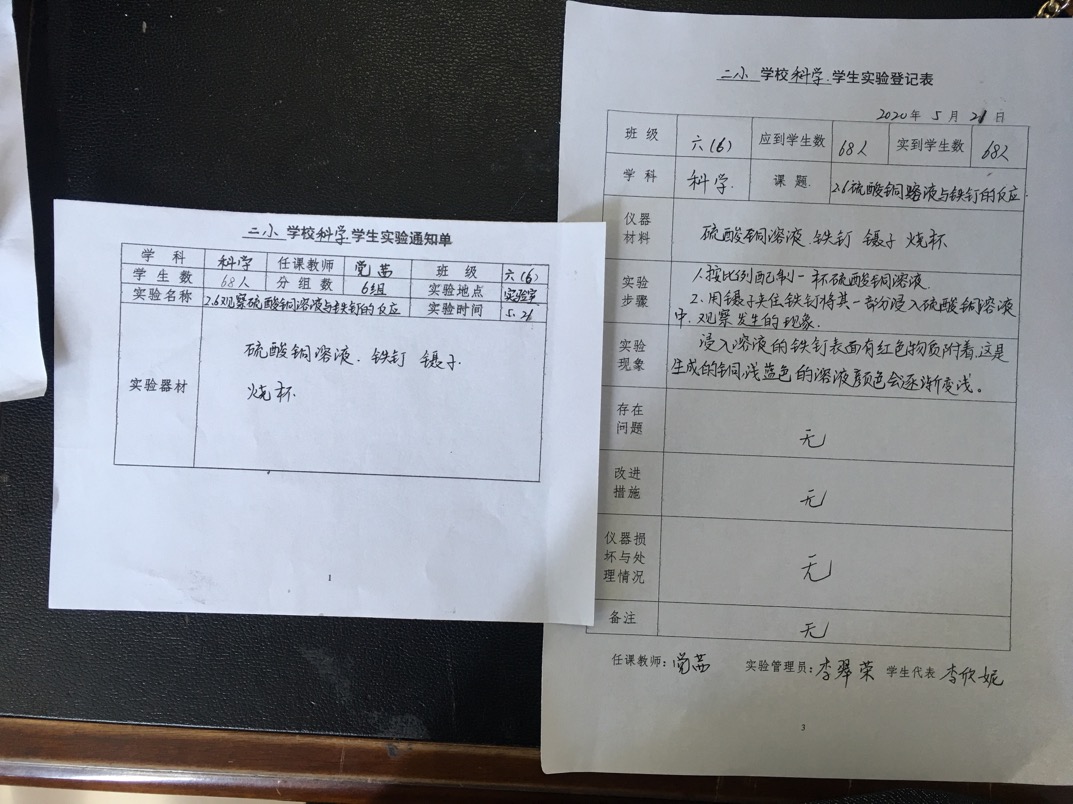 二小 学校 科学 学生实验通知单
学 科 科学 任课教师 党茜 班 级 六(6)
学 生 数 68人 分 组 数 6组 实验地点 实验室
实验名称 2.6观察硫酸铜溶液与铁钉的反应 实验时间 5.21
实验器材
硫酸铜溶液. 铁钉 镊子.
烧杯.
1
二小 学校 科学 学生实验登记表
2020年 5 月 21 日
班 级 六(6) 应到学生数 68人 实到学生数 68人
学 科 科学. 课 题. 2.6硫酸铜溶液与铁钉的反应.
仪器
材料
硫酸铜溶液. 铁钉 镊子 烧杯
实验
步骤
1.按比例配制一杯硫酸铜溶液.
2.用镊子夹住铁钉将其一部分浸入硫酸铜溶液
中.观察发生的现象.
实验
现象
浸入溶液的铁钉表面有红色物质附着.这是
生成的铜,浅蓝色的溶液颜色会逐渐变浅。
存在
问题
无
改进
措施
无
仪器损
坏与处
理情况
无
备注
无
任课教师: 党茜 实验管理员: 李翠荣 学生代表 李欣妮
3